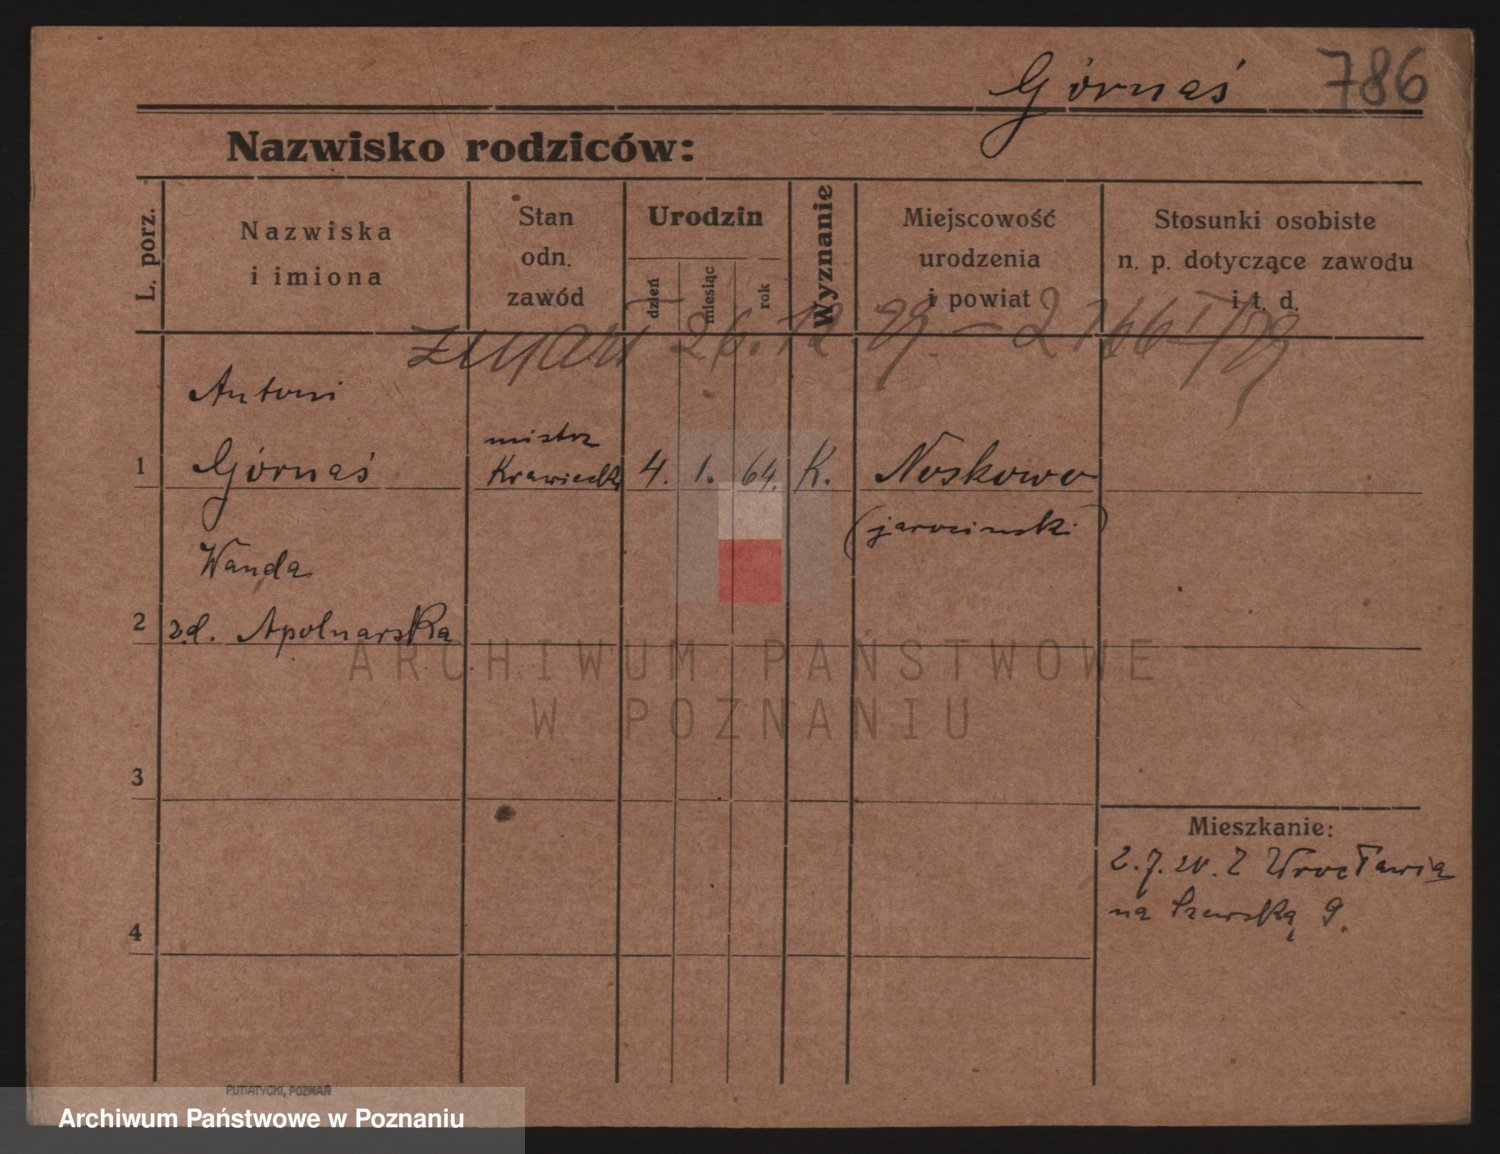 Górnaś 786
Nazwisko rodziców:
L. porz.
Nazwiska
i imiona
Stan
odn.
zawód
Urodzin
dzień
miesiąc
rok
Wyznanie
Miejscowość
urodzenia
i powiat
Stosunki osobiste
n. p. dotyczące zawodu
i t. d.
zmarł 26. 12 29 - 2166 I/29
Antoni
1 Górnaś mistrz Krawiecki 4. 1. 64. K. Noskowo
(jarocinski)
Wanda
2 zd. Apolnarska
ARCHIWUM PAŃSTWOWE
W POZNANIU
3
Mieszkanie:
2.7.20. Z Wrocławia
na Szewską 9.
4
PUTIATYCKI, POZNAŃ
Archiwum Państwowe w Poznaniu